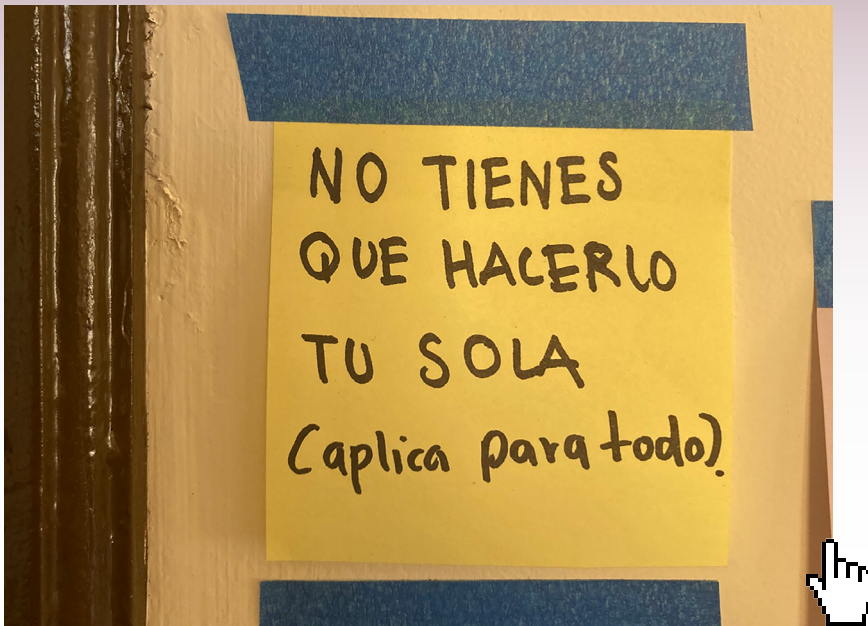 NO TIENES
QUE HACERLO
TU SOLA
(aplica para todo).